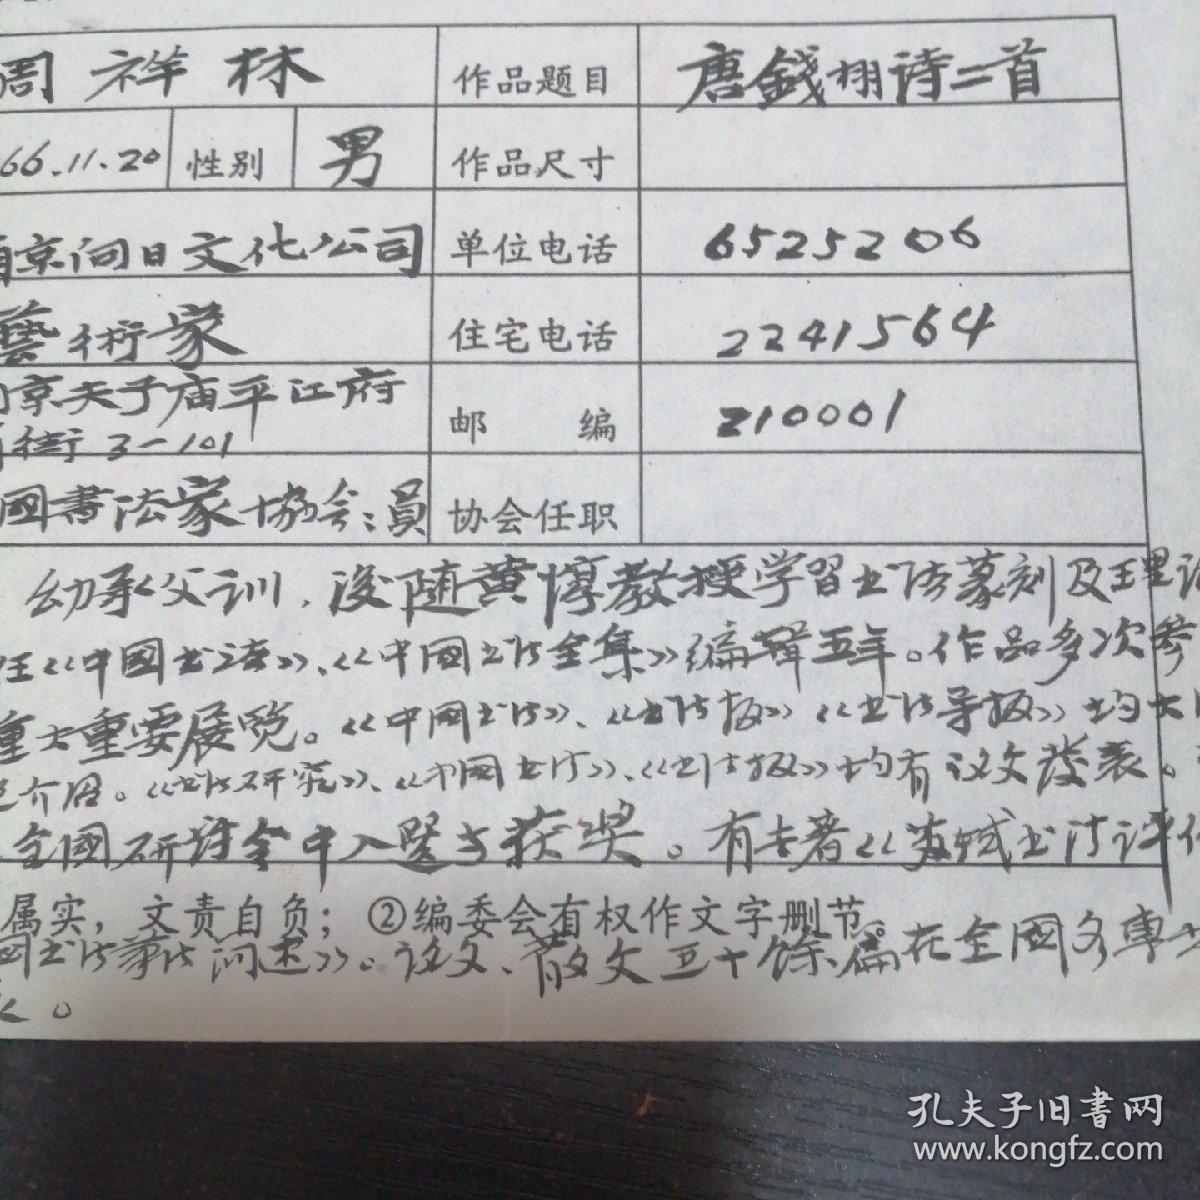 周祥林 作品题目 唐錢栩诗二首
66.11.20 性别 男 作品尺寸
南京向日文化公司 单位电话 6525206
藝術家 住宅电话 2241564
京夫子庙平江府 邮 编 210001
街 3-101
國書法家協会会員 协会任职
幼承父训，後随黄惇教授学習书法篆刻及理论
任《中國书法》、《中國书法全集》编辑五年。作品多次参
重大重要展览。《中國书法》、《书法报》《书法导报》均大
介绍。《书法研究》、《中國书法》、《书法报》均有论文發表。
全國研讨会中入選与获奖。有专著《苏轼书法评传
属实，文责自负；②编委会有权作文字删节。
國书法篆法问述》。论文、散文五十餘篇在全國各專业
。
孔夫子旧書网
www.kongfz.com